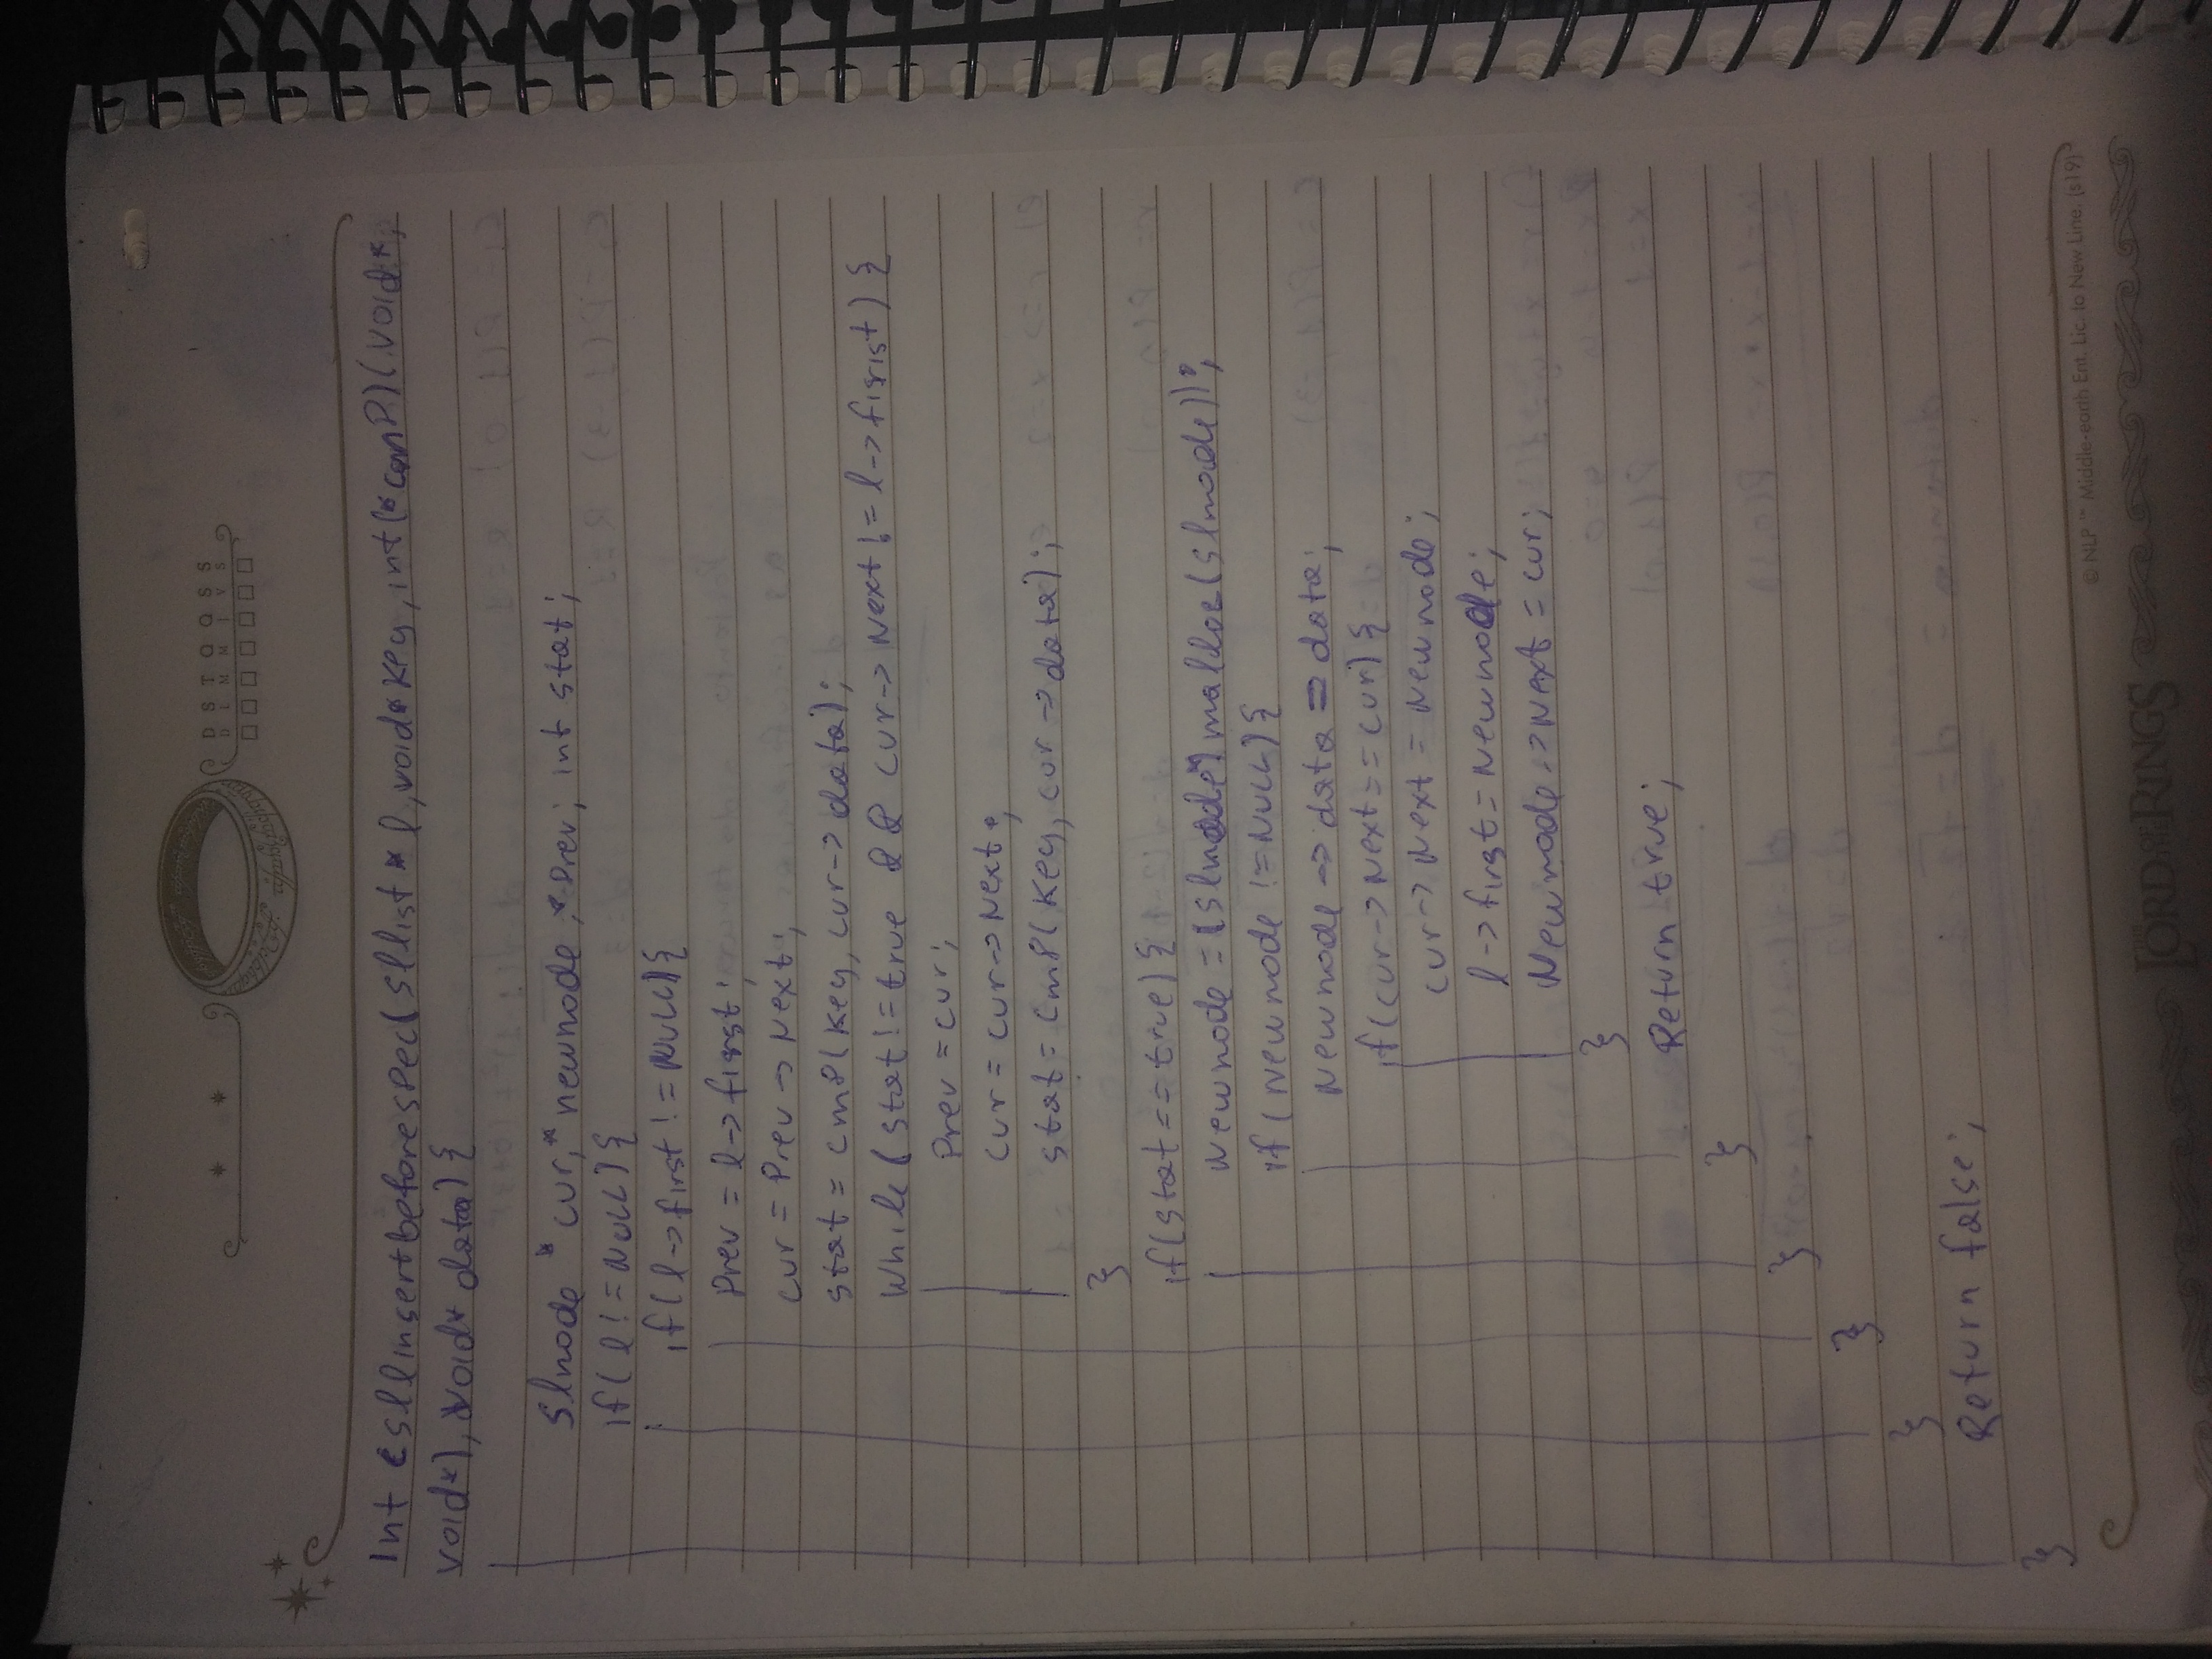 D S T Q Q S S
D L M M J V S
Int csllinsertbeforespec(sllist * l, void* key, int(* cmp)(void*,
void*), void* data) {
slnode *cur, *newnode, *Prev; int stat;
if( l != NULL) {
if( l -> first != NULL) {
Prev = l -> first;
cur = Prev -> Next;
stat = cmp( key, cur -> data);
While ( stat != true && cur -> Next != l -> first) {
Prev = cur;
cur = cur -> Next;
stat = cmp( key, cur -> data);
}
if(stat == true) {
Newnode = (slnode*) malloc(slnode));
if ( Newnode != NULL) {
Newnode -> data = data;
if(cur -> Next == cur) {
cur -> Next = Newnode;
l -> first = Newnode;
Newnode -> Next = cur;
}
Return true;
}
}
}
}
Return false;
}
© NLP ™ Middle-earth Ent. Lic. to New Line. (s19)
THE LORD OF THE RINGS